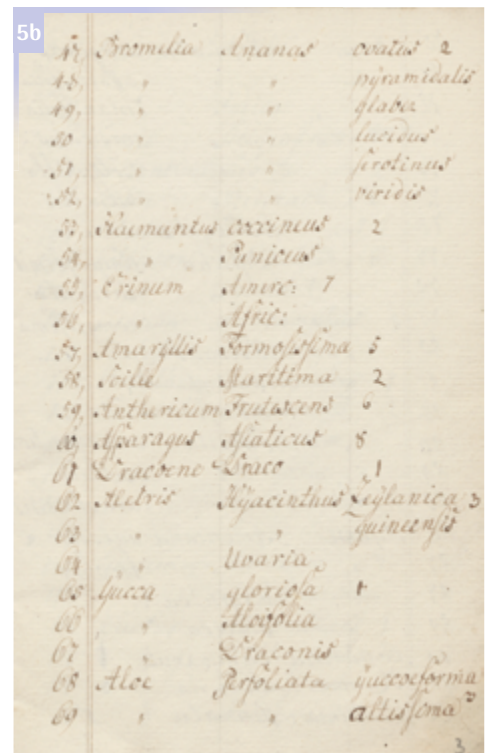 5b
47, Bromelia Ananas ovatus 2
48, " " pÿramidalis
49, " " glaber
50 " " lucidus
51, " " serotinus
52, " " viridis
53, Haemantus coccineus 2
54, " Puniceus
55, Crinum Americ: 7
56, " Afric:
57, Amarÿllis Formosissima 5
58, Scille Maritima 2
59, Anthericum Frutescens 6
60, Asparagus Asiaticus 8
61 Dracoene Draco 1
62 Aletris Hÿacinthus Zeÿlanica 3
63 " " guineensis
64 " Uvaria
65 Yucca gloriosa 1
66 " Aloifolia
67 " Draconis
68 Aloe Perfoliata ÿuccoeforma
69 " " altissema 2
3